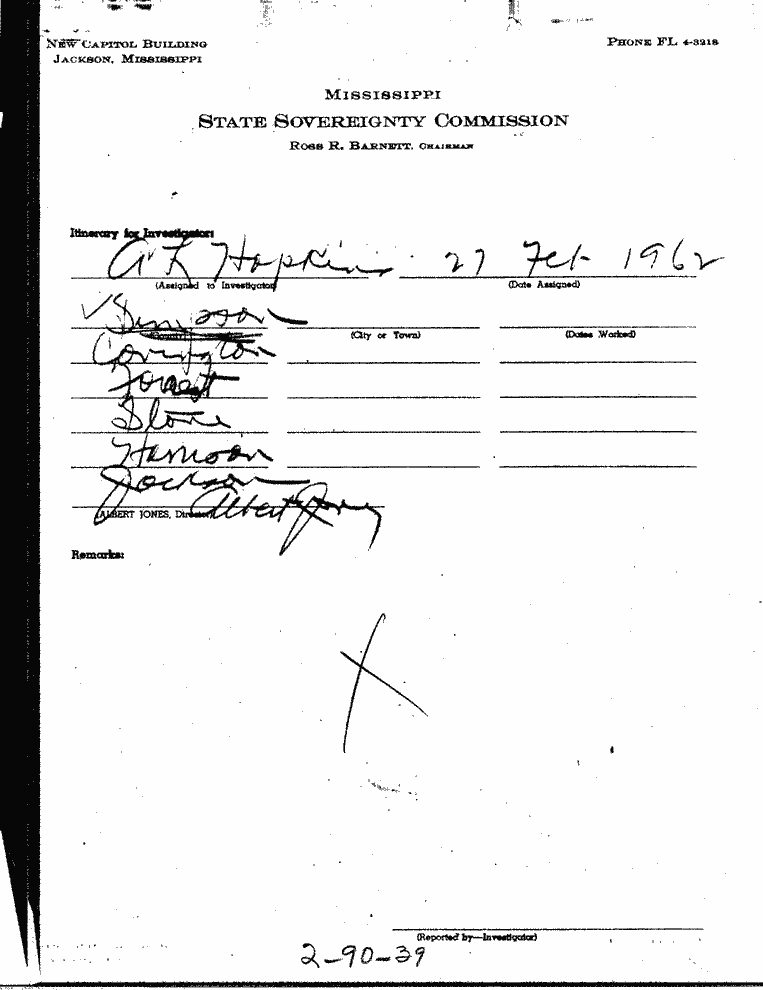 NEW CAPITOL BUILDING PHONE FL 4-3218
JACKSON, MISSISSIPPI
MISSISSIPPI
STATE SOVEREIGNTY COMMISSION
ROSS R. BARNETT, CHAIRMAN
Itinerary for Investigator:
A L Hopkins 27 Feb 1962
(Assigned to Investigator) (Date Assigned)
✓ Simpson
(City or Town) (Dates Worked)
Covington
Forrest
Stone
Harrison
Jackson
Albert Jones
(ALBERT JONES, Director)
Remarks:
X
(Reported by—Investigator)
2-90-39